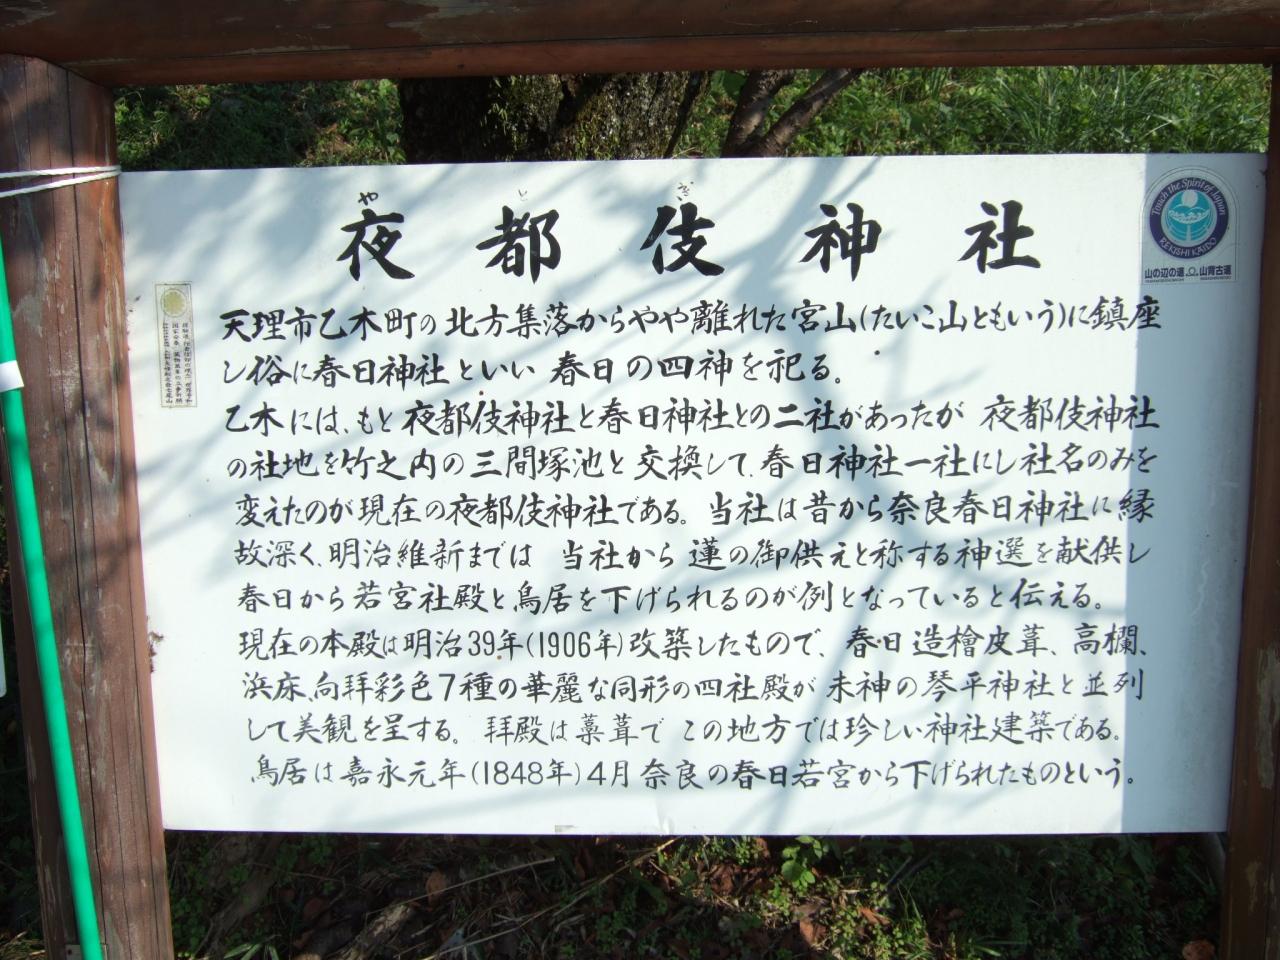 や と ぎ
夜都伎神社
天理市乙木町の北方集落からやや離れた宮山(たいこ山ともいう)に鎮座
し俗に春日神社といい 春日の四神を祀る。
乙木には、もと夜都伎神社と春日神社との二社があったが 夜都伎神社
の社地を竹之内の三間塚池と交換して、春日神社一社にし社名のみを
変えたのが現在の夜都伎神社である。当社は昔から奈良春日神社に縁
故深く、明治維新までは 当社から蓮の御供えと称する神選を献供し
春日から若宮社殿と鳥居を下げられるのが例となっていると伝える。
現在の本殿は明治39年(1906年)改築したもので、春日造檜皮葺、高欄、
浜床、向拝彩色7種の華麗な同形の四社殿が末神の琴平神社と並列
して美観を呈する。拝殿は藁葺で この地方では珍しい神社建築である。
鳥居は嘉永元年(1848年)4月奈良の春日若宮から下げられたものという。
Touch the Spirit of Japan
REKISHI KAIDO
山の辺の道 山背古道